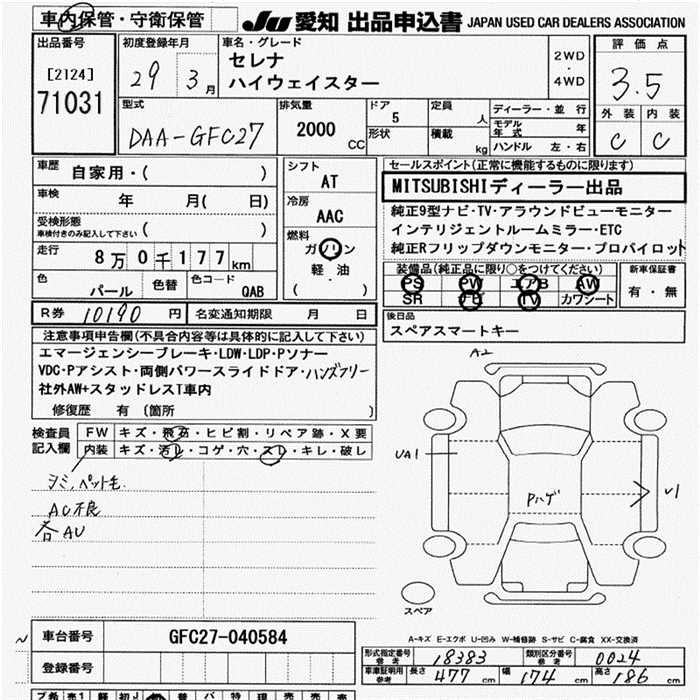 車内保管・守衛保管
JU 愛知 出品申込書 JAPAN USED CAR DEALERS ASSOCIATION
出品番号
[2124]
71031
初度登録年月
29 3月
車名・グレード
セレナ
ハイウェイスター
2WD
・
4WD
評価点
3.5
外装 内装
C C
型式
DAA-GFC27
排気量
2000 CC
ドア
5
形状
定員
人
積載
kg
ディーラー・並行
モデル年式 年
ハンドル 左・右
車歴
自家用・( )
車検
年 月( 日)
受検形態
車検付きのみ記入して下さい
( )
走行
8万0千177km
色
パール
色替
色コード
QAB
シフト
AT
冷房
AAC
燃料
ガソリン
・
軽油
( )
セールスポイント(正常に機能するものに限ります)
MITSUBISHIディーラー出品
純正9型ナビ・TV・アラウンドビューモニター
インテリジェントルームミラー・ETC
純正Rフリップダウンモニター・プロパイロット
装備品(純正品に限り○をつけてください)
PS PW エアB AW
SR ナビ TV カワシート
新車保証書
有・無
R券 10190 円
名変通知期限 月 日
後日品
スペアスマートキー
注意事項申告欄(不具合内容等は具体的に記入して下さい)
エマージェンシーブレーキ・LDW・LDP・Pソナー
VDC・Pアシスト・両側パワースライドドア・ハンズフリー
社外AW+スタッドレスT車内
修復歴 有(箇所 )
検査員記入欄
FW キズ・飛石・ヒビ割・リペア跡・X要
内装 キズ・汚レ・コゲ・穴・スレ・キレ・破レ
シミ、ペット毛
AC不良
各AU
A2
UA1
Pハゲ
U1
スペア
A-キズ E-エクボ U-凹み W-補修跡 S-サビ C-腐食 XX-交換済
車台番号
GFC27-040584
登録番号
形式指定番号 参考 18383
類別区分番号 参考 0024
車庫証明用 参考 長さ 477cm 幅 174cm 高さ 186cm